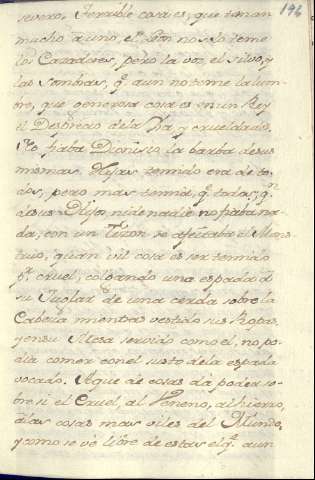 196
severo. Terrible cosa es, que teman
mucho a uno, el Leon no solo teme
los Cazadores, pero la voz, el silvo, y
las sombras, q.e aun no teme la lum-
bre, que generosa cosa es en un Rey
el Desprecio de la Yra y crueldad.
No fiaba Dionisio la barba de sus
mismas Hijas temido era de to-
dos, pero mas temia q.e todos, q.n
de sus Hijas ni de nadie no fiaba na-
da, con un Tizon se afeitaba el Mons-
truo, quan vil cosa es ser temido
p.r cruel; colgando una espada de
su Juglar de una cerda sobre la
Cabeza mientras vestido sus Ropas,
y en su Mesa servido como el, no po-
dia comer con el susto de la espada
vocado. A que de cosas dá poder so-
bre si el Cruel, al Veneno, al hierro,
a las cosas mas viles del Mundo,
y como se vé libre de estas el q.e aun